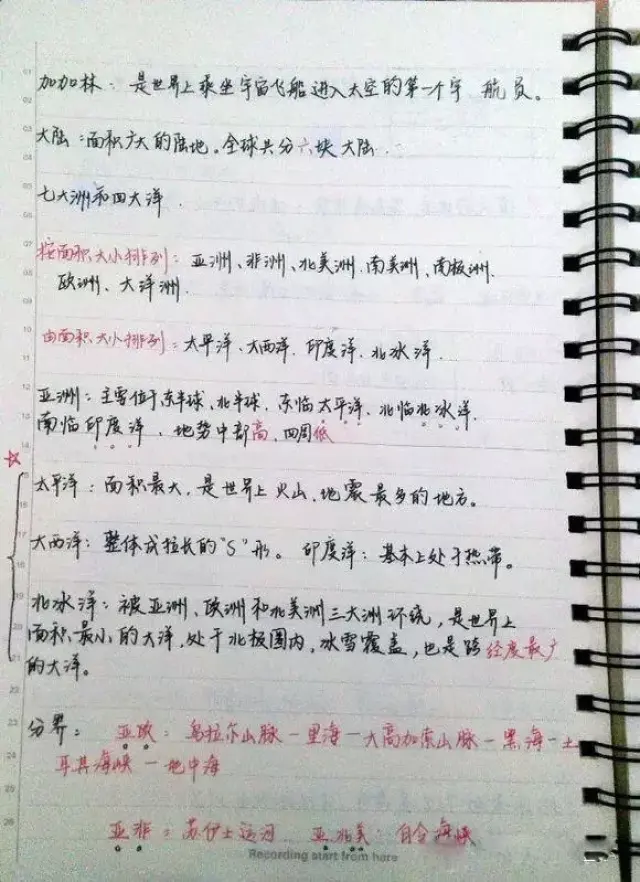 加加林：是世界上乘坐宇宙飞船进入太空的第一个宇航员。
大陆：面积广大的陆地。全球共分六块大陆.
七大洲和四大洋.
按面积大小排列：亚洲、非洲、北美洲.南美洲、南极洲.
欧洲、大洋洲.
由面积大小排列：太平洋、大西洋.印度洋、北冰洋.
亚洲：主要位于东半球、北半球、东临太平洋、北临北冰洋.
南临印度洋、地势中部高、四周低
太平洋：面积最大，是世界上火山、地震最多的地方。
大西洋：整体成拉长的“S”形。 印度洋：基本上处于热带。
北冰洋：被亚洲、欧洲和北美洲三大洲环绕，是世界上
面积最小的大洋，处于北极圈内，冰雪覆盖，也是跨经度最广
的大洋。
分界： 亚欧：乌拉尔山脉－里海－大高加索山脉－黑海－土
耳其海峡－地中海
亚非：苏伊士运河 亚北美：白令海峡
Recording start from here